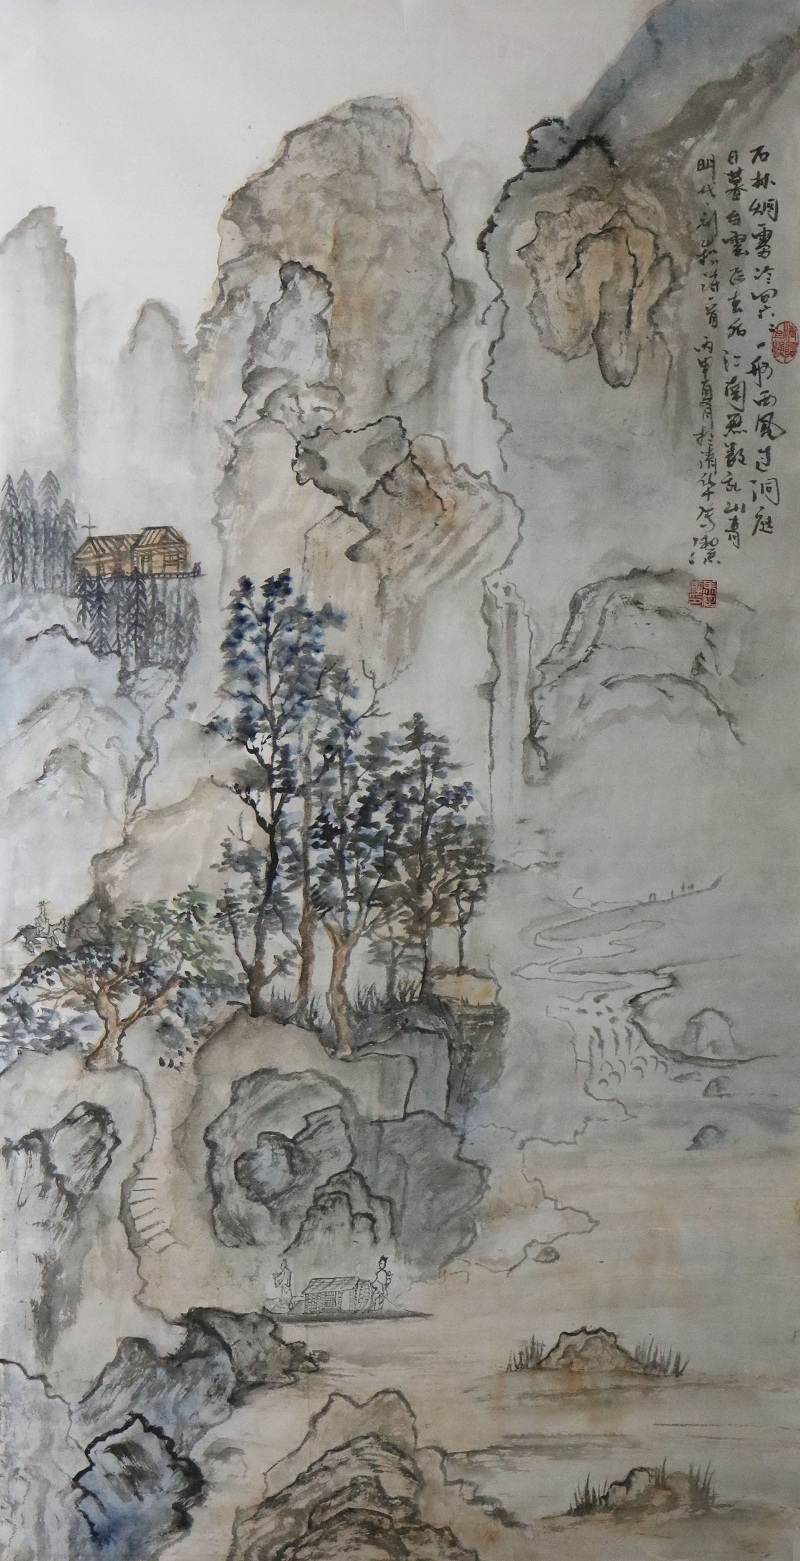 石林烟雾冷冥冥一夜西風过洞庭
日暮白雲飞去后江南無数乱山青
明代刘崧诗一首丙申夏月於清华写